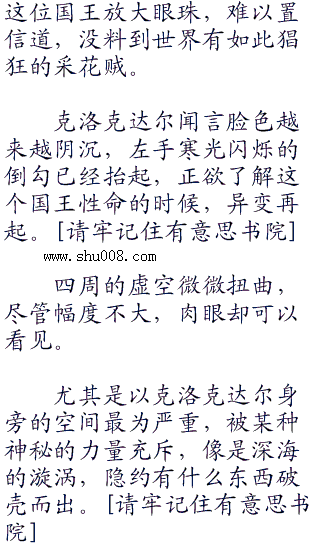 这位国王放大眼珠，难以置
信道，没料到世界有如此猖
狂的采花贼。
克洛克达尔闻言脸色越
来越阴沉，左手寒光闪烁的
倒勾已经抬起，正欲了解这
个国王性命的时候，异变再
起。[请牢记住有意思书院]
www.shu008.com
四周的虚空微微扭曲，
尽管幅度不大，肉眼却可以
看见。
尤其是以克洛克达尔身
旁的空间最为严重，被某种
神秘的力量充斥，像是深海
的漩涡，隐约有什么东西破
壳而出。[请牢记住有意思书
院]